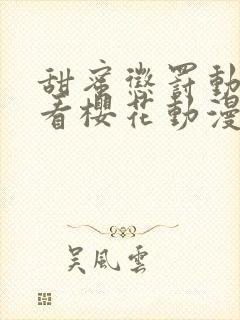 甜蜜懲罰動
看櫻花動漫
吳風雲